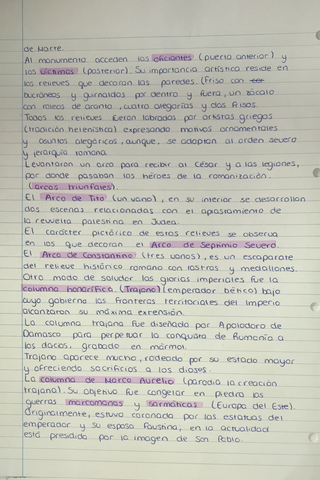 de Marte.
Al monumento acceden los oficiantes (puerta anterior) y
las víctimas (posterior). Su importancia artística reside en
los relieves que decoran las paredes. (Friso con
bucráneos y guirnaldas por dentro y fuera, un zócalo
con roleos de acanto, cuatro alegorías y dos frisos.
Todos los relieves fueron labrados por artistas griegos
(tradición helenística) expresando motivos ornamentales
y asuntos alegóricos, aunque, se adaptan al orden severo
y jerarquía romana.
Levantaron un arco para recibir al César y a las legiones,
por donde pasaban los héroes de la romanización.
(arcos triunfales).
El Arco de Tito (un vano), en su interior se desarrollan
dos escenas relacionadas con el aplastamiento de
la revuelta palestina en Judea.
El carácter pictórico de estos relieves se observa
en los que decoran el Arco de Septimio Severo.
El Arco de Constantino (tres vanos), es un escaparate
del relieve histórico romano con rostros y medallones.
Otro modo de saludar las glorias imperiales fue la
columna honorífica. (Trajano) (emperador bético) bajo
cuyo gobierno las fronteras territoriales del Imperio
alcanzaron su máxima extensión.
La columna trajana fue diseñada por Apolodoro de
Damasco para perpetuar la conquista de Rumanía a
los dacos, grabado en mármol.
Trajano aparece mucho, rodeado por su estado mayor
y ofreciendo sacrificios a los dioses.
La columna de Marco Aurelio (parodia la creación
trajana). Su objetivo fue congelar en piedra las
guerras marcomanas y sarmáticas (Europa del Este).
Originalmente, estuvo coronada por las estatuas del
emperador y su esposa Faustina, en la actualidad
está presidido por la imagen de San Pablo.